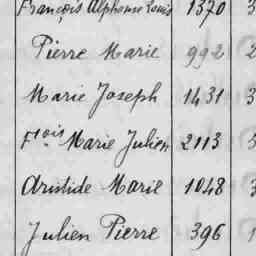 François Alphonse Louis 1370 3
Pierre Marie 992 2
Marie Joseph 1431 3
Fois Marie Julien 2113 5
Aristide Marie 1048 3
Julien Pierre 396 1